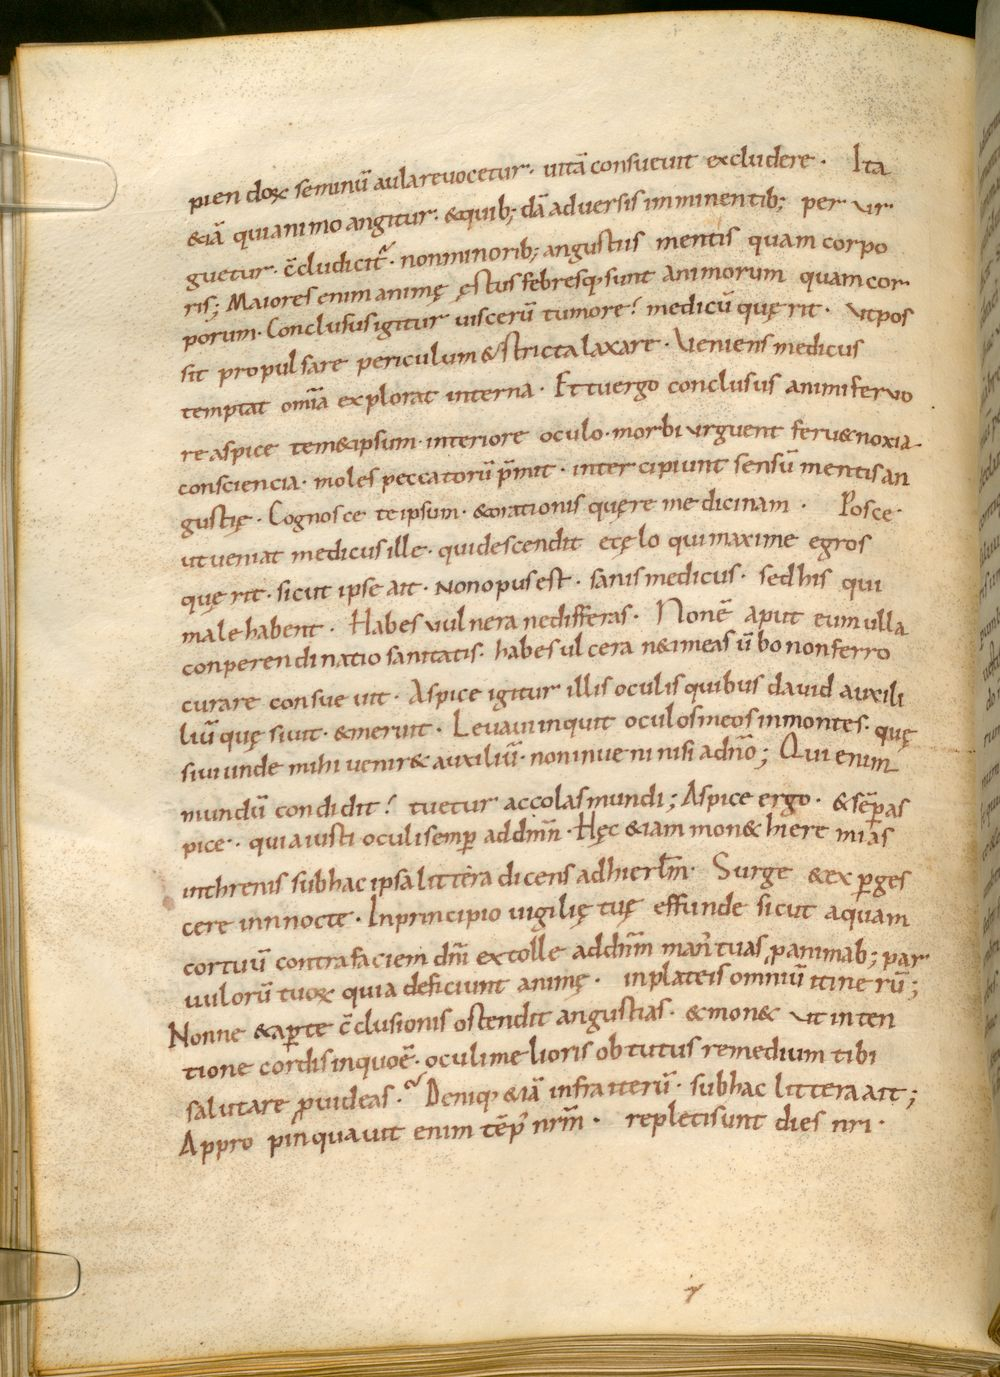 pien doꝝ seminū aula reuocetur · uitā consueuit excludere · Ita
&iā qui animo angitur · & quib; dā aduersis imminentib; per ur
guetur · c̄cludicit᷑ · non minorib; angustiis mentis quam corpo
ris; Maiores enim animę ęstus febresq; sunt animorum quam cor
porum · Conclusus igitur uiscerū tumore? medicū quęrit · ut pos
sit propulsare periculum & stricta laxare · Veniens medicus
temptat om̄ia explorat interna · Et tu ergo conclusus animi feruo
re aspice tem&ipsum · interiore oculo · morbi urguent feru& noxia
consciencia · moles peccatorū p̄mit · intercipiunt sensū mentis an
gustię · Cognosce te ipsum · & orationis quęre medicinam · Posce
ut ueniat medicus ille · qui descendit e cęlo qui maxime egros
quęrit · sicut ipse ait · Non opus est · sanis medicus · sed his qui
male habent · Habes uulnera ne differas · Non ē aput eum ulla
conperendinatio sanitatis · habes ulcera n& imeas ū bo non ferro
curare consueuit · Aspice igitur illis oculis quibus dauid auxili
liū quęsiuit · & meruit · Leuaui inquit oculos meos in montes · quę
siui unde mihi uenir& auxiliū · non inueni nisi ad dn̄o; Qui enim
mundū condidit? tuetur accolas mundi; Aspice ergo · & sēp as
pice · quia iusti oculi semꝑ ad dm̄n · Hęc &iam mon& hieremias
in threnis sub hac ipsa littera dicens ad hierl̄m · Surge & exꝑges
cere in nnocte · In principio uigilię tuę effunde sicut aquam
cor tuū contra faciem dn̄i extolle ad dn̄m man᷑ tuas ꝓ animab; par
uulorū tuoꝝ quia deficiunt animę · in plateis omniū itinerū;
Nonne & aꝑte c̄clusionis ostendit angustias · & mon& ut inten
tione cordis in quo ē · oculi melioris obtutus remedium tibi
salutare ꝓuideas · Deniq; &iā infra iterū · sub hac littera ait;
Appropinquauit enim tēp᾽ nr̄m · repleti sunt dies nri ·